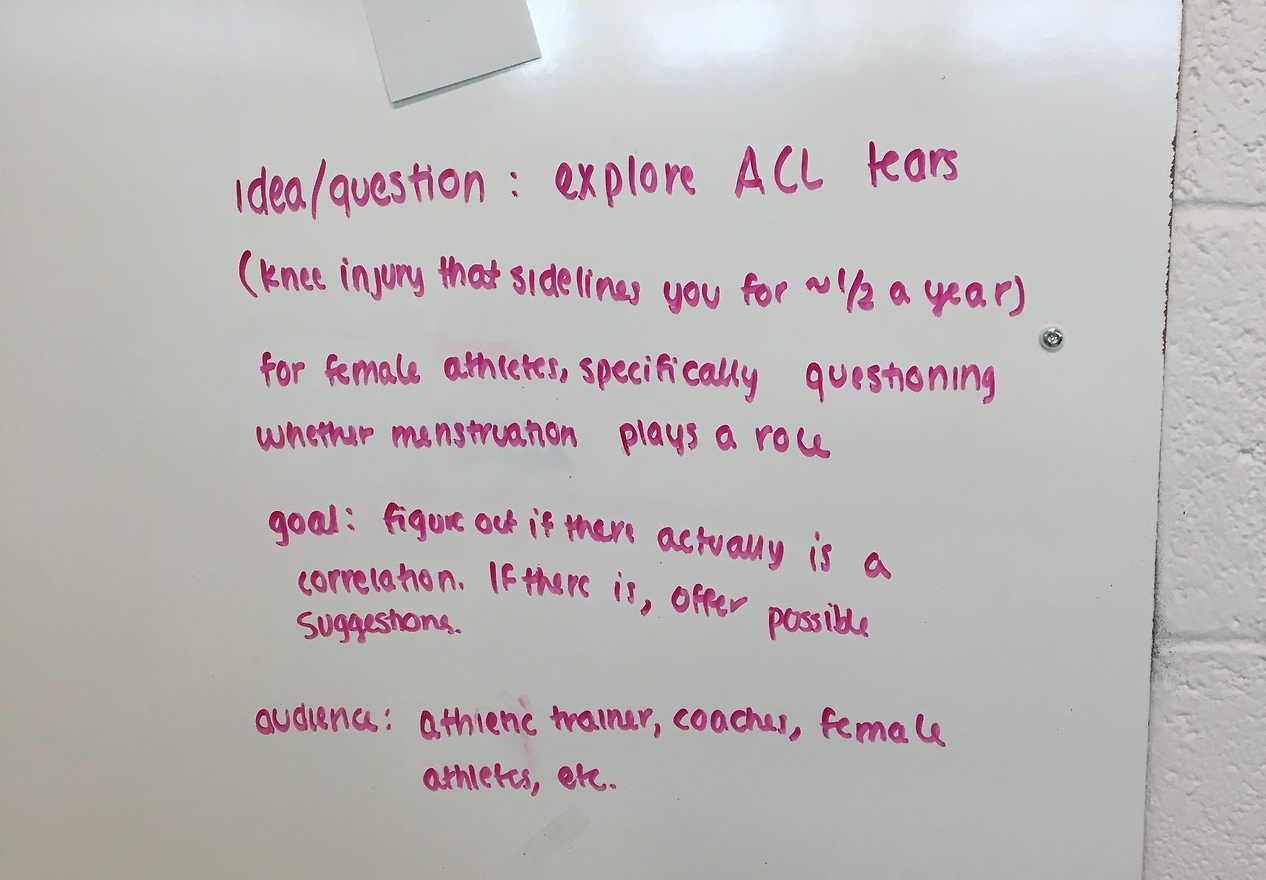 idea/question : explore ACL tears
(knee injury that sidelines you for ~1/2 a year)
for female athletes, specifically questioning
whether menstruation plays a role
goal: figure out if there actually is a
correlation. If there is, offer possible
suggestions.
audience: athletic trainer, coaches, female
athletes, etc.